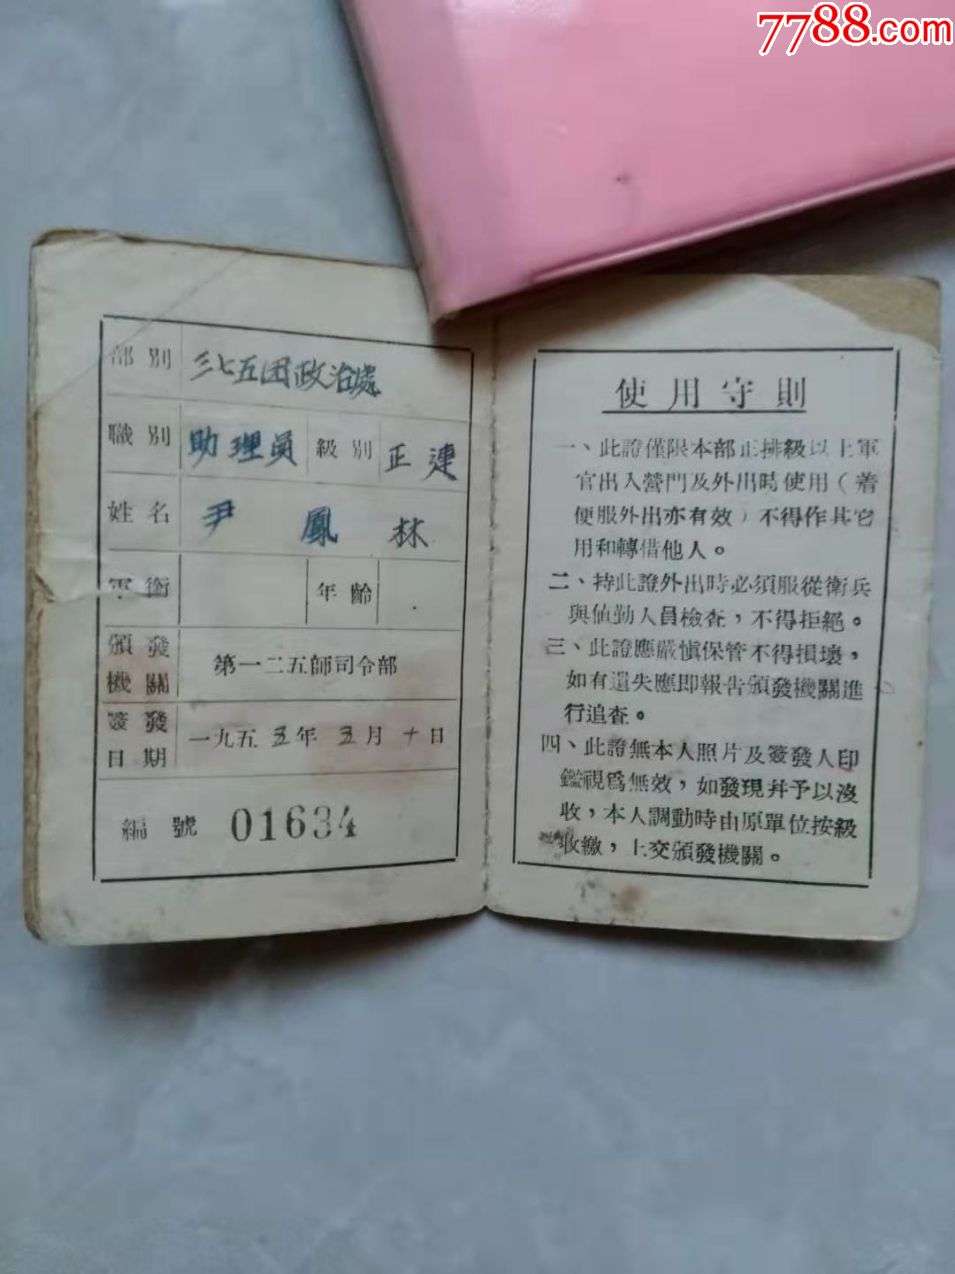 7788.com
部別 三七五团政治處
職別 助理員 級別 正連
姓名 尹鳳林
軍銜 年齡
頒發機關 第一二五師司令部
簽發日期 一九五五年五月十日
編號 01634
使用守則
一、此證僅限本部正排級以上軍
官出入營門及外出時使用（着
便服外出亦有效）不得作其它
用和轉借他人。
二、持此證外出時必須服從衛兵
與值勤人員檢查，不得拒絕。
三、此證應嚴慎保管不得損壞，
如有遺失應即報告頒發機關進
行追查。
四、此證無本人照片及簽發人印
鑑視爲無效，如發現幷予以沒
收，本人調動時由原單位按級
收繳，上交頒發機關。